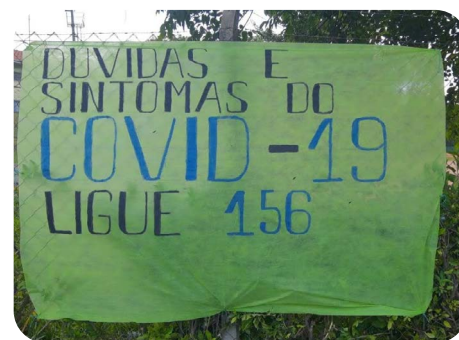 DÚVIDAS E
SINTOMAS DO
COVID-19
LIGUE 156